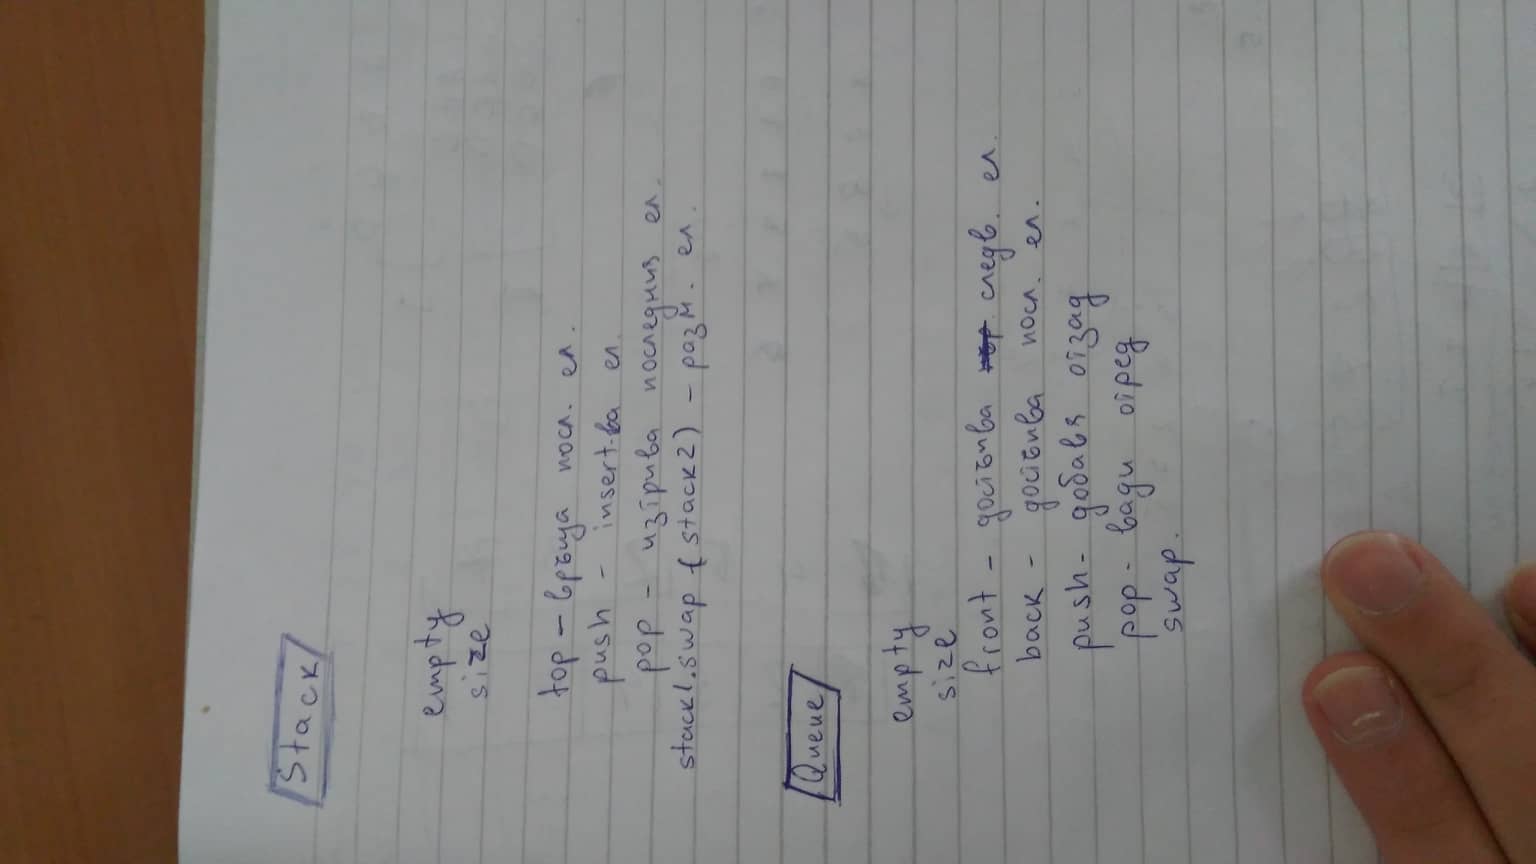 Stack
empty
size
top - връща посл. ел.
push - insert-ва ел.
pop - изтрива последния ел.
stack1.swap (stack2) - разм. ел.
Queue
empty
size
front - достъпва следв. ел.
back - достъпва посл. ел.
push - добавя отзад
pop - вади отпред
swap.